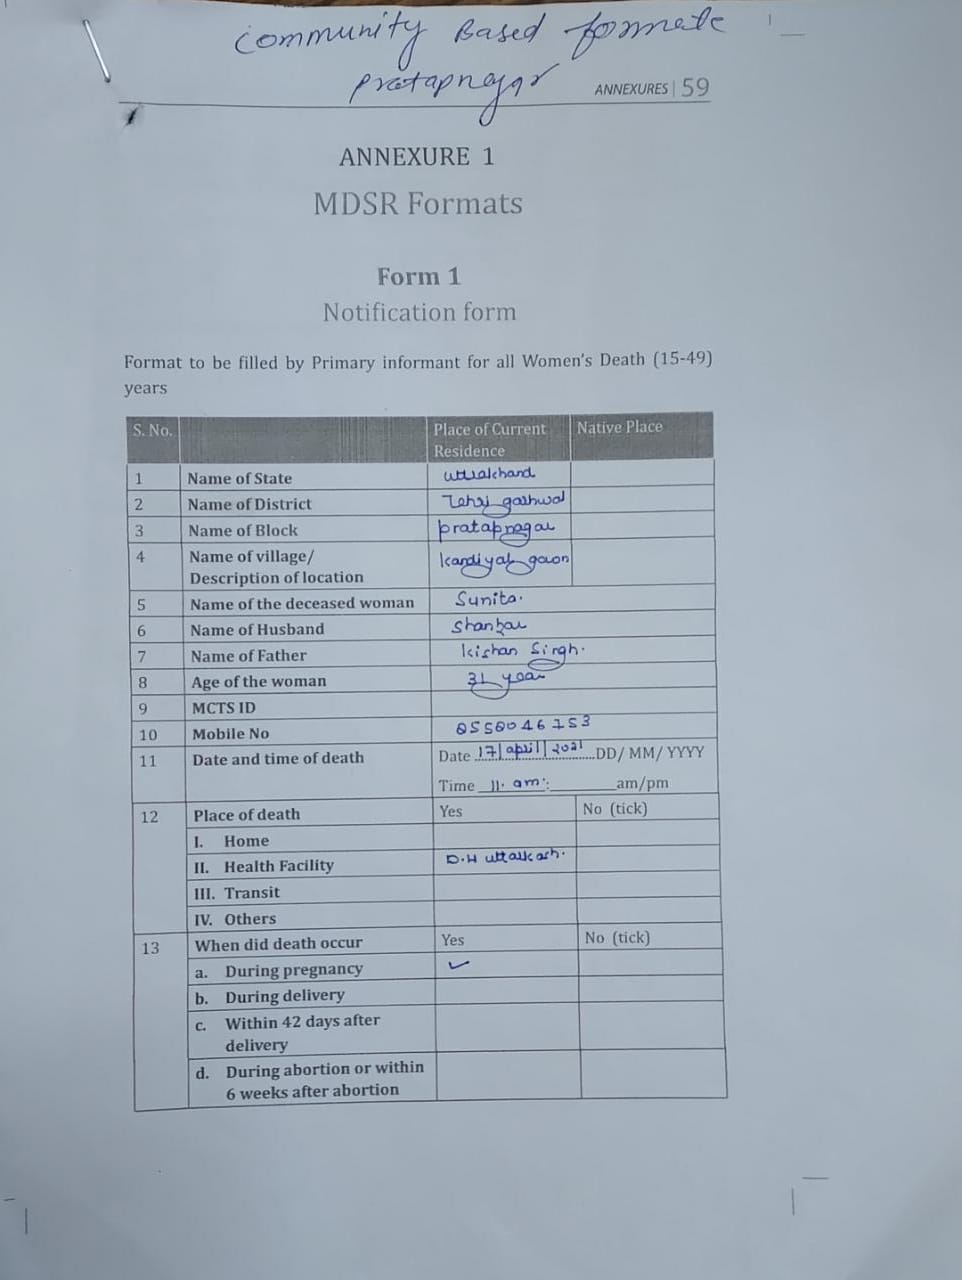 Community Based formate
pratapnagar
ANNEXURES | 59
ANNEXURE 1
MDSR Formats
Form 1
Notification form
Format to be filled by Primary informant for all Women's Death (15-49)
years
S. No. Place of Current Residence Native Place
1 Name of State uttrakhand
2 Name of District Tehri garhwal
3 Name of Block pratapnagar
4 Name of village/
Description of location kandiyal gaon
5 Name of the deceased woman Sunita.
6 Name of Husband Shankar
7 Name of Father Kishan Singh.
8 Age of the woman 31 year
9 MCTS ID
10 Mobile No
11 Date and time of death Date 17/april/2021 DD/ MM/ YYYY
Time 11. am: am/pm
12 Place of death Yes No (tick)
I. Home
II. Health Facility D.H uttarkashi.
III. Transit
IV. Others
13 When did death occur Yes No (tick)
a. During pregnancy ✓
b. During delivery
c. Within 42 days after
delivery
d. During abortion or within
6 weeks after abortion